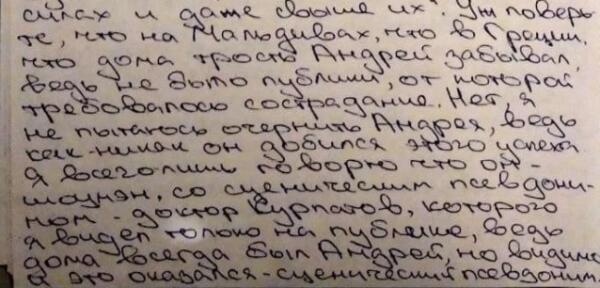 силах и даже свыше их". Уж поверь
те, что на Мальдивах, что в Греции,
что дома трость Андрей забывал,
ведь не было публики, от которой
требовалось сострадание. Нет, я
не пытаюсь очернить Андрея, ведь
как-никак он добился этого успеха
я всего лишь говорю что он-
шоумэн, со сценическим псевдони-
мом - доктор Курпатов, которого
я видел только на публике, ведь
дома всегда был Андрей, но видимо
и это оказался-сценический псевдоним.